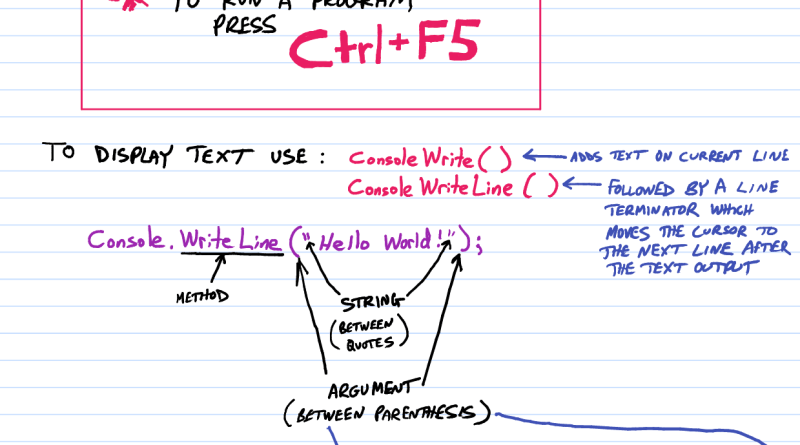 TO RUN A PROGRAM,
PRESS
Ctrl+F5
TO DISPLAY TEXT USE : Console Write ( ) ADDS TEXT ON CURRENT LINE
Console WriteLine ( ) FOLLOWED BY A LINE
TERMINATOR WHICH
MOVES THE CURSOR TO
THE NEXT LINE AFTER
THE TEXT OUTPUT
Console. WriteLine ("Hello World!");
METHOD
STRING
(BETWEEN
QUOTES)
ARGUMENT
(BETWEEN PARENTHESIS)